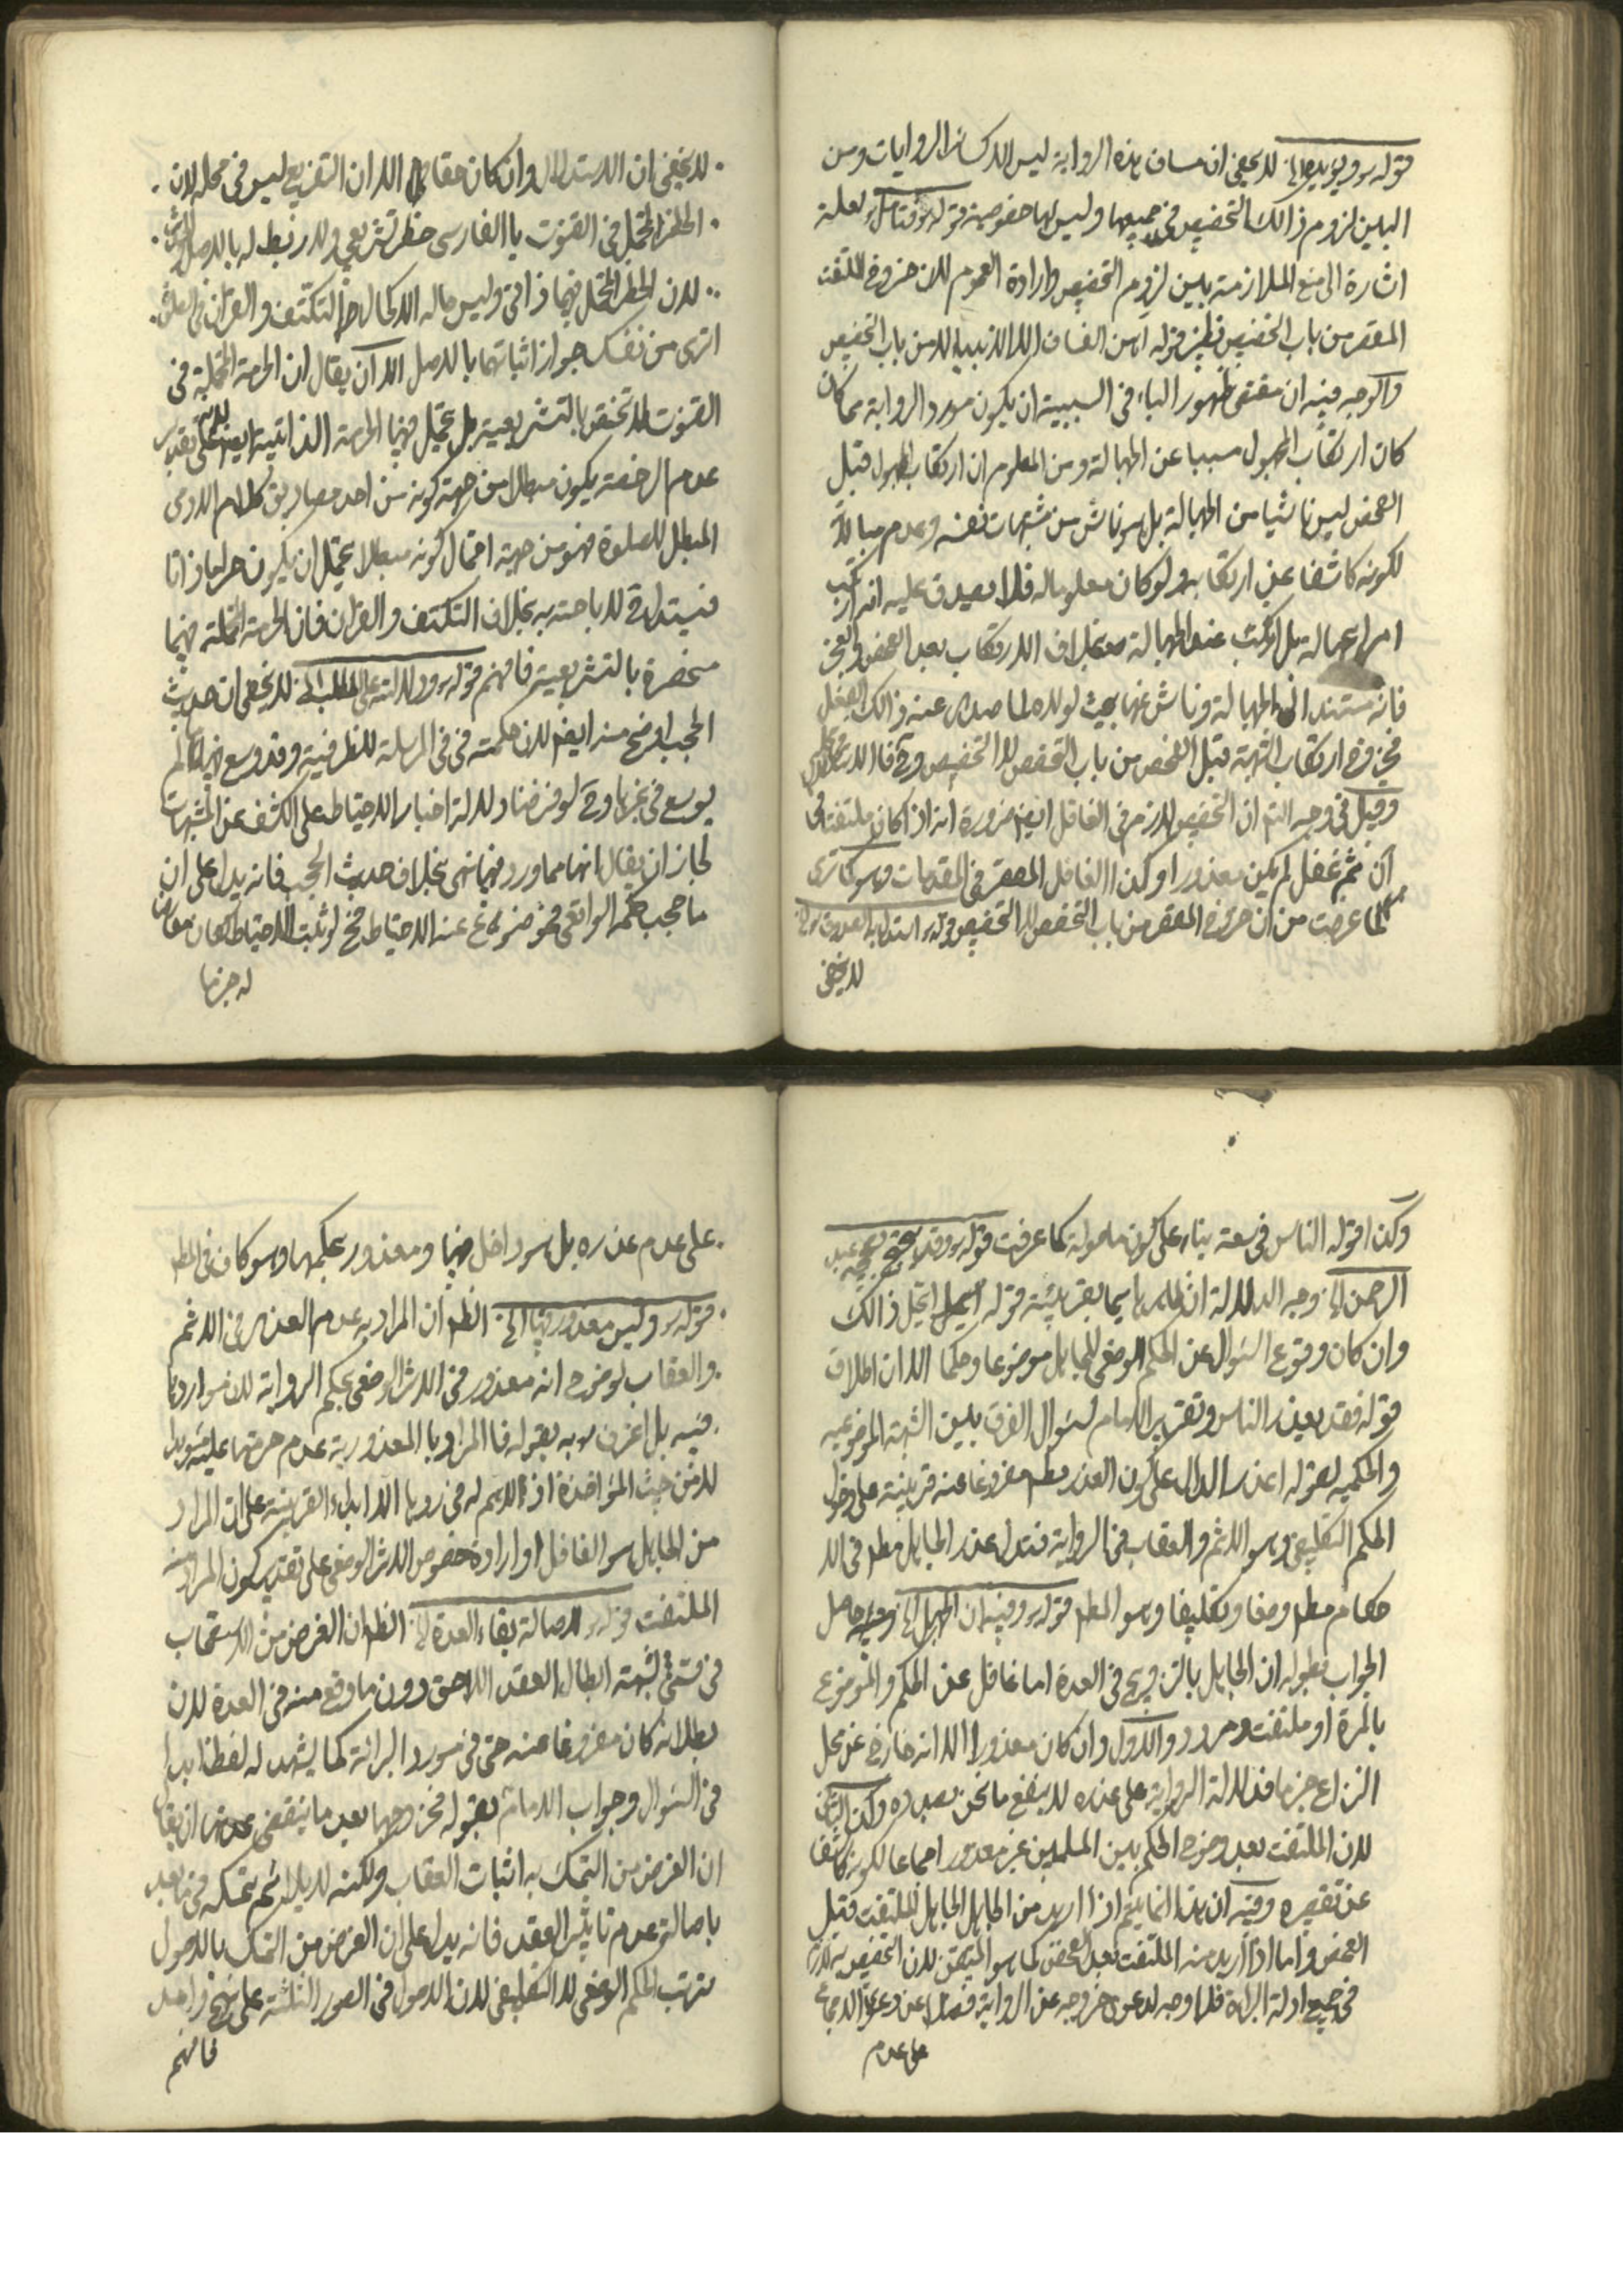 قوله ره ويؤيده الخ لا يخفى ان مساق هذه الرواية ليس الا كسائر الروايات ومن
البين لزوم ذالك التخصيص في جميعها وليس لها خصوصية قوله ره فتامل لعله
اشارة الى منع الملازمة بين لزوم التخصيص وارادة العموم لان خروج الملتفت
المقصر من باب التخصيص قوله من الفساق الا
والوجه فيه ان مقتضى ظهور الباء في السببية ان يكون مورد الرواية مما كان
كان ارتكاب المجهول مسببا عن الجهالة ومن المعلوم ان ارتكاب المجهول قبل
الفحص ليس ناشيا من الجهالة بل هو ناش من شهوات نفسه وعدم مبالاته
لكونه كاشفا عن ارتكابه ولو كان معلوما له فلا يصدق عليه انه ارتكب
امرا بجهالة بل ارتكب عند الجهالة بخلاف الارتكاب بعد الفحص والعجز
فانه مستند الى الجهالة وناش عنها بحيث لولاها لما صدر عنه ذالك الفعل
فخروج ارتكاب الشبهة قبل الفحص من باب التخصص لا التخصيص وح فالاستدلال
وقيل في وجه التامل ان التخصيص لازم في الغافل ايضا ضرورة انه اذا كان ملتفتا في
آن ثم غفل لم يكن معذورا وكذا الغافل المقصر في المقدمات وهو كما ترى
لما عرفت من ان خروج المقصر من باب التخصص لا التخصيص قوله ره
لا يخفى
لا يخفى ان الاستدلال وان كان حقا الا ان التفريع ليس في محله لان
الحظر المحتمل في القنوت بالفارسي حظر تشريعي ولا ربط له بالاصل
لان الحظر المحتمل فيها ذاتي وليس ماله الا كمال حظر التكتف والقران في الصلوة
اترى من نفسك جواز اثباتهما بالاصل الا ان يقال ان الحرمة المحتملة في
القنوت لا تختص بالتشريعية بل يحتمل فيها الحرمة الذاتية ايضا لانه على تقدير
عدم الرخصة يكون مبطلا من جهة كونه من احد مصاديق كلام الادمي
المبطل للصلوة فهو من جهة احتمال كونه مبطلا يحتمل ان يكون حراما ذاتا
فيستدل لاباحته به بخلاف التكتف والقران فان الحرمة المحتملة فيهما
منحصرة بالتشريعية فافهم قوله ره ودلالته على المطلب الخ لا يخفى ان حديث
الحجب اوضح منه ايضا لان كلمة في في المرسلة للظرفية وقد وسع فيها ما لم
يوسع في غيرها وح لو فرضنا دلالة اخبار الاحتياط على الكشف عن الشبهات
لجاز ان يقال انها مما ورد فيها نهي بخلاف حديث الحجب فانه يدل على ان
ما حجب حكمه الواقعي فهو موضوع عنه الاحتياط فح لو ثبت الاحتياط لكان معارضا
له جزما
وكذا قوله الناس في سعة بناء على كون ما موصولة كما عرفت قوله ره وقد يحتج بصحيحة عبد
الرحمن الخ وجه الدلالة انه بقرينة قوله ذالك
وان كان وقوع السؤال عن الحكم الوضعي للجاهل موضوعا وحكما الا ان اطلاق
قوله فقد يعذر الناس وتقرير الامام لسؤال الفرق بين الشبهة الموضوعيه
والحكميه بقوله اعذر الدال على كون العذر مفروغا عنه قرينة على دخول
الحكم التكليفي وهو الاثم والعقاب في الرواية فتدل على عذر الجاهل مطلقا في الا
حكام مطلقا وضعا وتكليفا وهو المطلوب قوله ره وفيه ان الجهل الخ وحاصل
الجواب بطوله ان الجاهل بالتزويج في العدة اما غافل عن الحكم والموضوع
بالمرة او ملتفت ومردد والاول وان كان معذورا الا انه خارج عن محل
النزاع جزما فدلالة الرواية على عذره لا ينفع ما نحن بصدده وكذا الثاني
لان الملتفت بعد وضوح الحكم بين المسلمين غير معذور اجماعا لكونه كاشفا
عن تقصيره وفيه ان هذا انما يتم اذا اريد من الجاهل الجاهل الملتفت قبل
الفحص واما اذا اريد منه الملتفت بعد الفحص كما هو المتيقن لان التخصيص به لازم
في جميع ادلة البرائة فلا وجه لدعوى خروجه عن الرواية فضلا عن دعوى الاجماع
على عدم
على عدم عذره بل هو داخل فيها ومعذور بحكمها وهو كاف في المطلوب
قوله ره وليس معذور فيها الخ الظاهر ان المراد به عدم العذر في الاثم
والعقاب لوضوح انه معذور في الاثر الوضعي بحكم الرواية لانه مواردها
فيه بل اعترف ره به بقوله فالمراد بالمعذورية عدم حرمتها عليه مؤبدا
لا من حيث المؤاخذة اذ لا هم له في ردها الا ابداء القرينة على ان المراد
من الجاهل هو الغافل او ارادة خصوص الاثر الوضعي على تقدير كون المراد منه
الملتفت قوله ره لاصالة بقاء العدة الخ الظاهر ان الغرض من الاستصحاب
في قسمي الشبهة ابطال العقد اللاحق دون ما وقع منه في العدة لان
بطلانه كان مفروغا عنه حتى في مورد البرائة كما يشهد له لفظة ابدا
في السؤال وجواب الامام بقوله فليتزوجها بعد ما ينقضي عدتها او يقال
ان الغرض من التمسك به اثبات العقاب ولكنه لا يلائم تمسكه فيما بعد
باصالة عدم تاثير العقد فانه يدل على ان الغرض من التمسك بالاصول
ترتب الحكم الوضعي لا التكليفي لان الاصول في الصور الثلثة على نهج واحد
فافهم